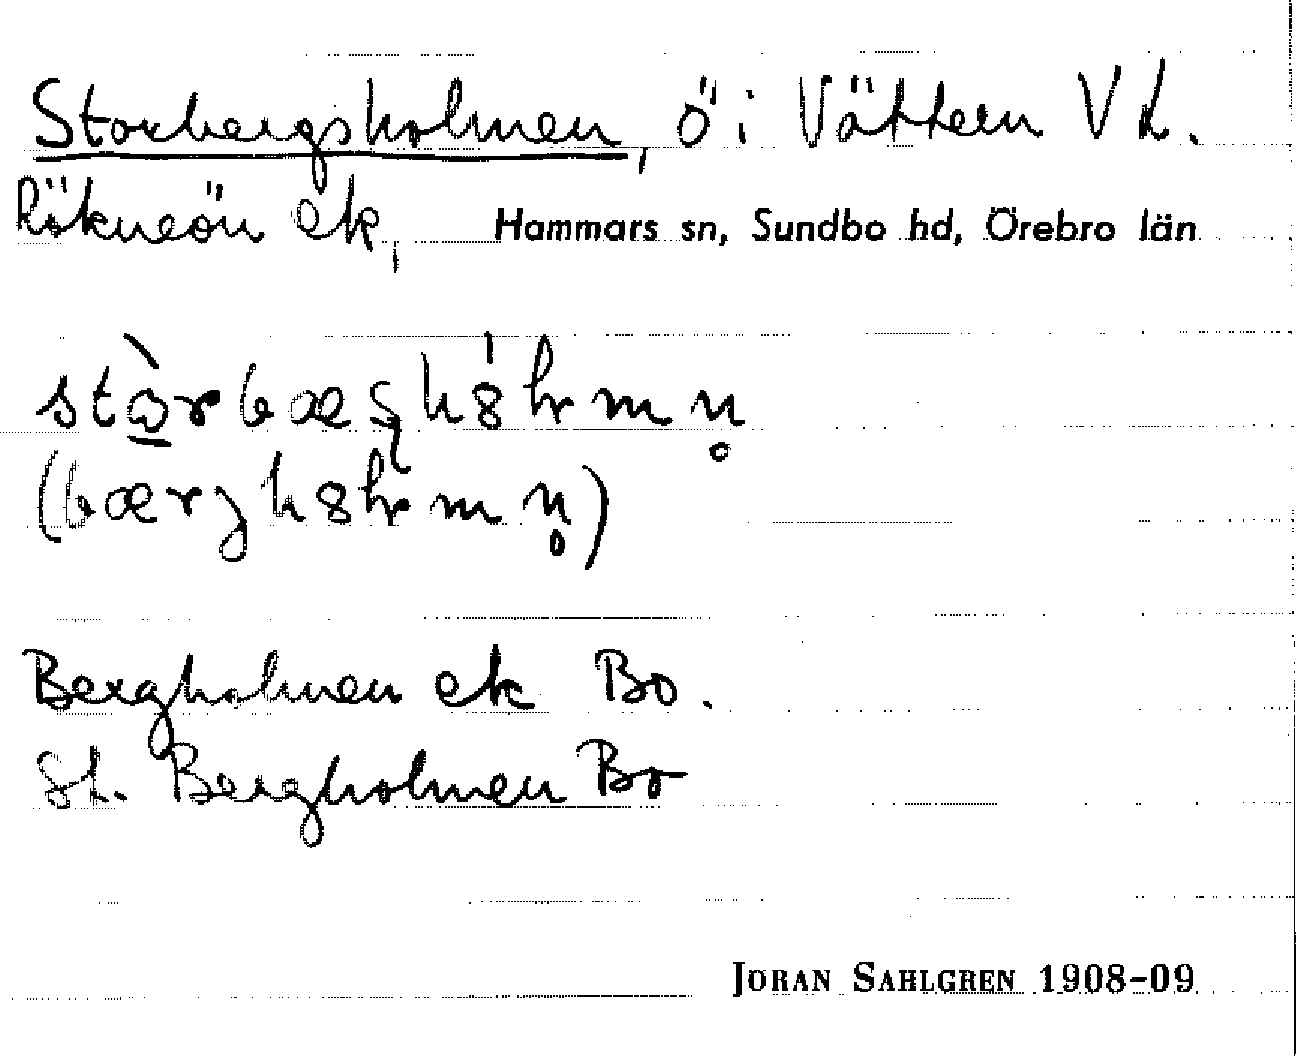 Storbergsholmen, ö i Vättern V L.
Rökneön ek, Hammars sn, Sundbo hd, Örebro län
Bergholmen ek Bo.
St. Bergholmen Bo
JORAN SAHLGREN 1908-09